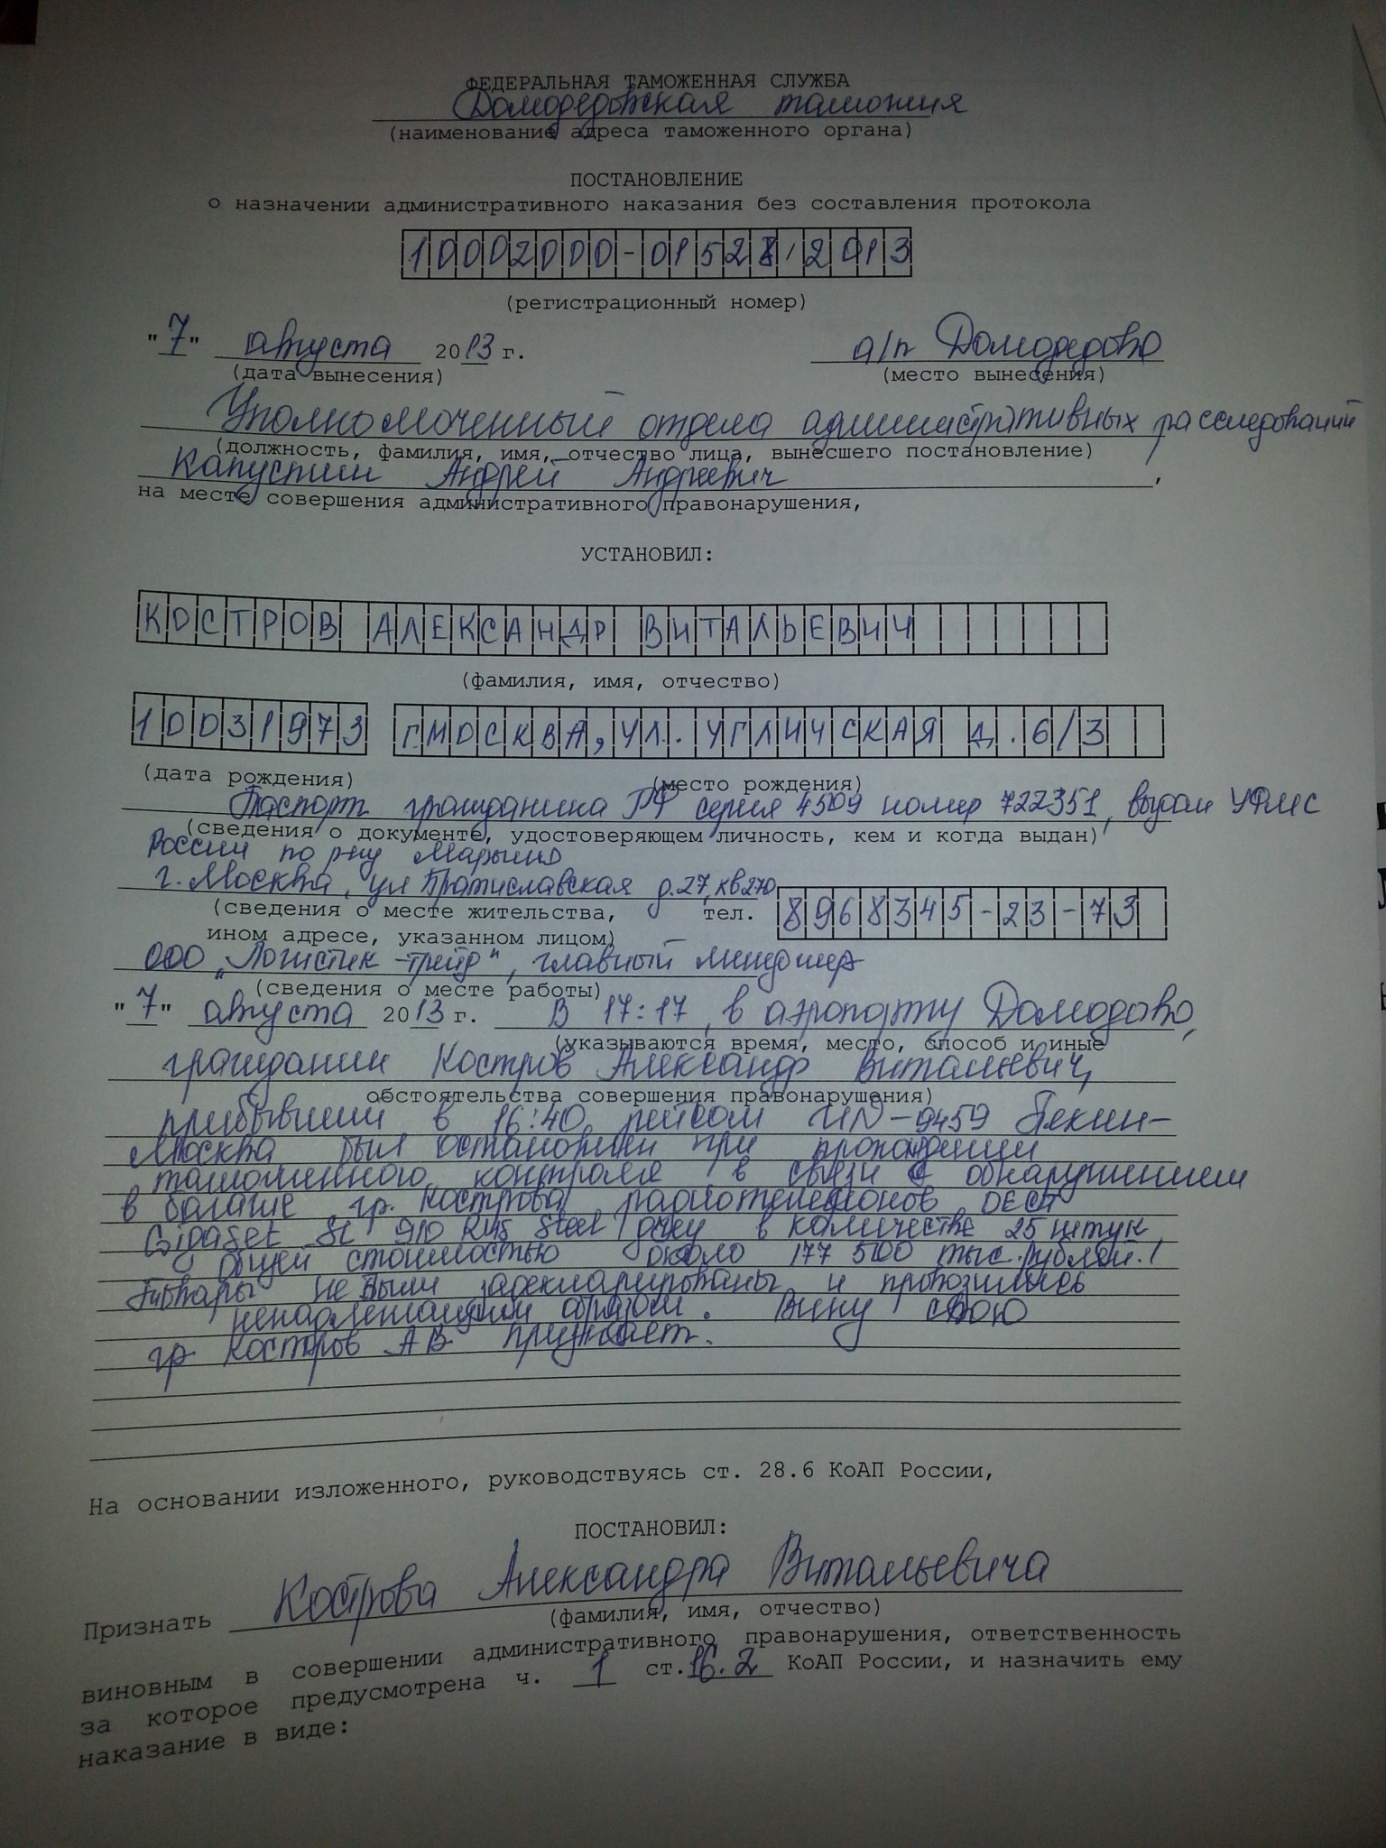 ФЕДЕРАЛЬНАЯ ТАМОЖЕННАЯ СЛУЖБА
Домодедовская таможня
(наименование адреса таможенного органа)
ПОСТАНОВЛЕНИЕ
о назначении административного наказания без составления протокола
10002000-01528/2013
(регистрационный номер)
"7" августа 2013 г. а/п Домодедово
(дата вынесения) (место вынесения)
Уполномоченный отдела административных расследований
(должность, фамилия, имя, отчество лица, вынесшего постановление)
Капустин Андрей Андреевич,
на месте совершения административного правонарушения,
УСТАНОВИЛ:
КОСТРОВ АЛЕКСАНДР ВИТАЛЬЕВИЧ
(фамилия, имя, отчество)
10031973 г.МОСКВА, УЛ. УГЛИЧСКАЯ Д.6/3
(дата рождения) (место рождения)
Паспорт гражданина РФ серия 4509 номер 722351, выдан УФМС
(сведения о документе, удостоверяющем личность, кем и когда выдан)
России по р-ну Марьино
г. Москва, ул Братиславская д.27, кв270
(сведения о месте жительства, тел. 8968345-23-73
ином адресе, указанном лицом)
ООО "Логистик-трейд", главный менеджер
(сведения о месте работы)
"7" августа 2013 г. В 17:17, в аэропорту Домодово,
(указываются время, место, способ и иные
гражданин Костров Александр Витальевич,
обстоятельства совершения правонарушения)
прибывший в 16:40 рейсом UN-9459 Пекин-
Москва был остановлен при прохождении
таможенного контроля в связи с обнаружением
в багаже гр. Кострова радиотелефонов DECT
Gigaset SL 910 RUS Steel grey в количестве 25 штук
общей стоимостью около 177 500 тыс. рублей.
Товары не были задекларированы и провозились
ненадлежащим образом. Вину свою
гр Костров АВ признает.
На основании изложенного, руководствуясь ст. 28.6 КоАП России,
ПОСТАНОВИЛ:
Признать Кострова Александра Витальевича
(фамилия, имя, отчество)
виновным в совершении административного правонарушения, ответственность
за которое предусмотрена ч. 1 ст.16.2 КоАП России, и назначить ему
наказание в виде: